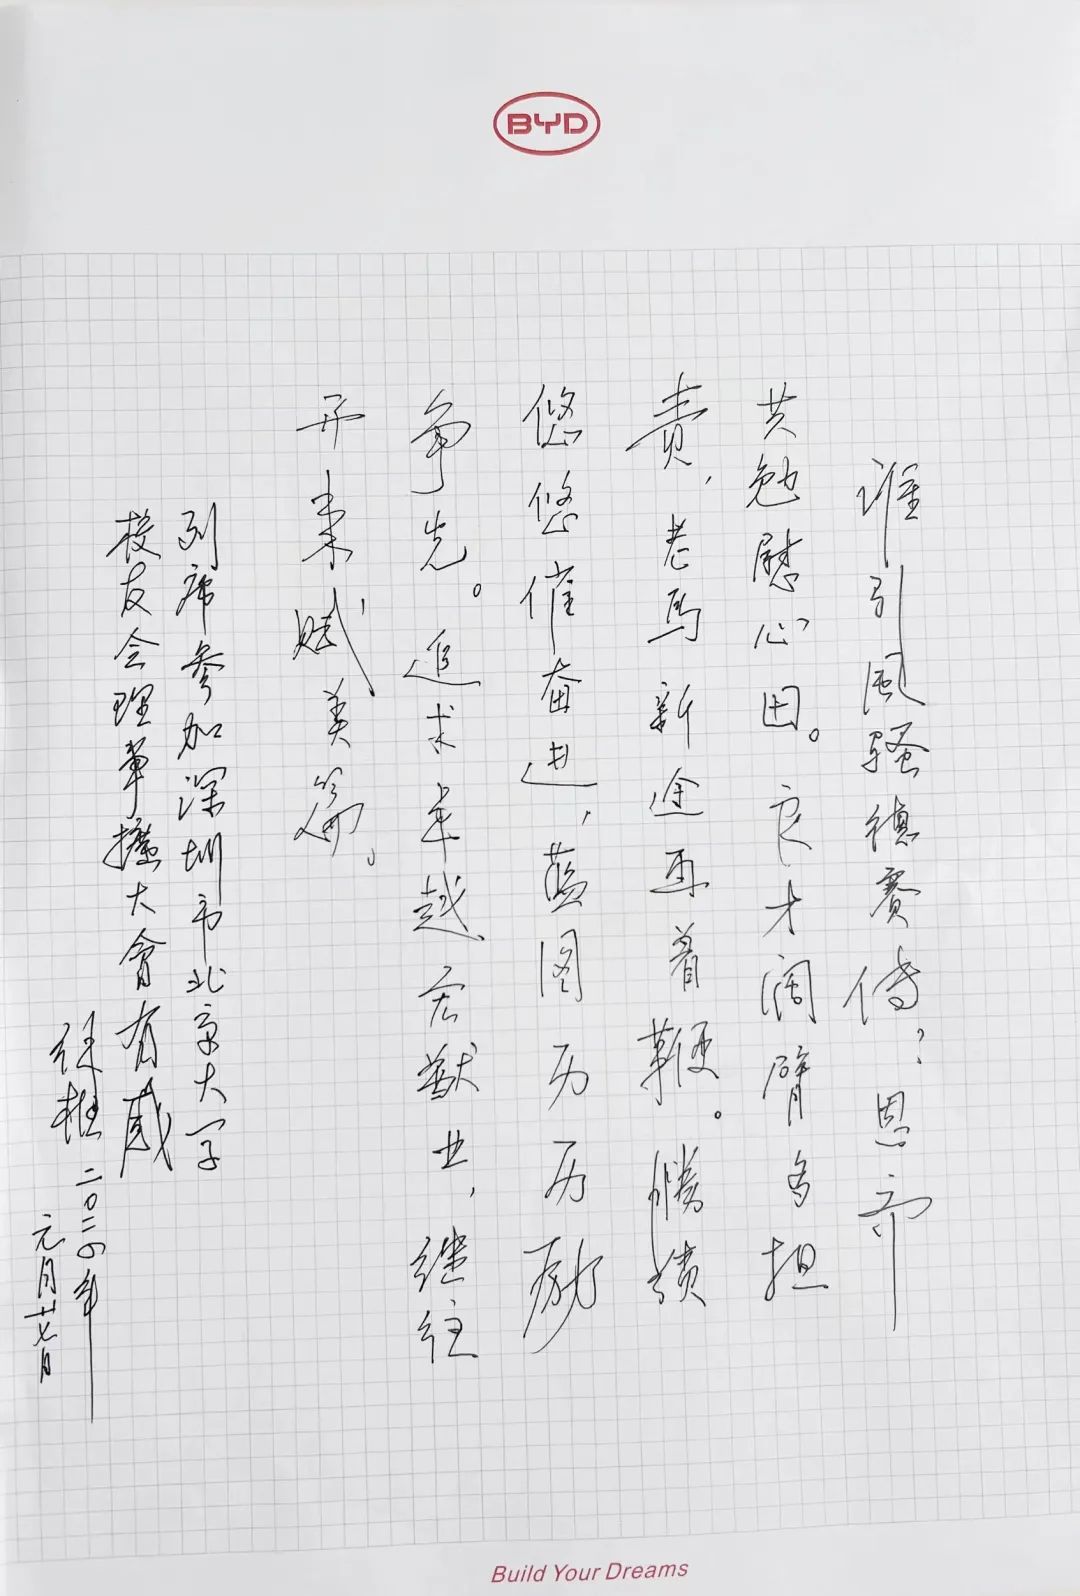 BYD
谁引風骚德赛传？恩师
共勉慰心田。良才阔臂多担
责，老马新途再着鞭。勝绩
悠悠催奋进，蓝图历历励
争先。追求卓越宏猷业，继往
开来赋美篇。
列席参加深圳市北京大学
校友会理事擴大會有感
二〇二六年
元月廿七日
Build Your Dreams